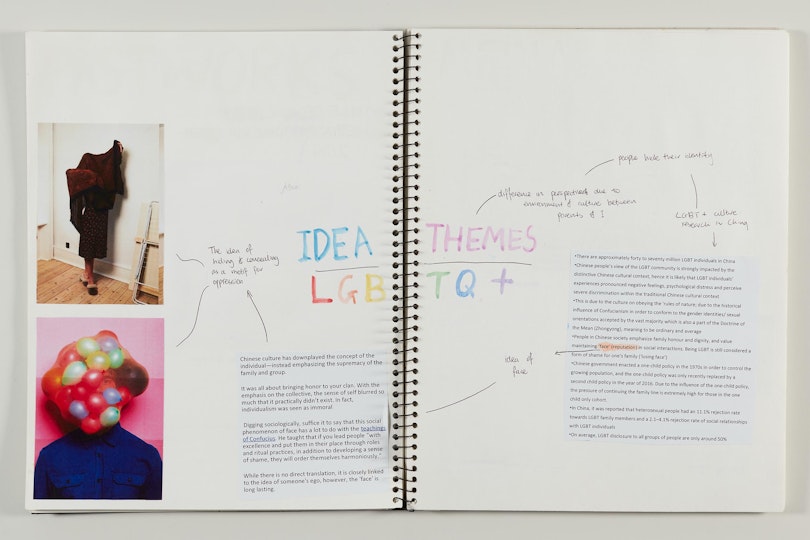 The idea of
hiding & concealing
as a motif for
oppression
IDEA THEMES
LGBTQ+
Chinese culture has downplayed the concept of the
individual—instead emphasizing the supremacy of the
family and group.
It was all about bringing honor to your clan. With the
emphasis on the collective, the sense of self blurred so
much that it practically didn't exist. In fact,
individualism was seen as immoral
Digging sociologically, suffice it to say that this social
phenomenon of face has a lot to do with the teachings
of Confucius. He taught that if you lead people "with
excellence and put them in their place through roles
and ritual practices, in addition to developing a sense
of shame, they will order themselves harmoniously."
While there is no direct translation, it is closely linked
to the idea of someone's ego, however, the 'face' is
long lasting.
people hide their identity
difference in perspectives due to
environment & culture between
parents & I
LGBT+ culture
research in China
idea of
face
•There are approximately forty to seventy million LGBT individuals in China.
•Chinese people's view of the LGBT community is strongly impacted by the
distinctive Chinese cultural context, hence it is likely that LGBT individuals'
experiences pronounced negative feelings, psychological distress and perceive
severe discrimination within the traditional Chinese cultural context
•This is due to the culture on obeying the 'rules of nature; due to the historical
influence of Confucianism in order to conform to the gender identities/ sexual
orientations accepted by the vast majority which is also a part of the Doctrine of
the Mean (Zhongyong), meaning to be ordinary and average
•People in Chinese society emphasize family honour and dignity, and value
maintaining 'face (reputation) in social interactions. Being LGBT is still considered a
form of shame for one's family ('losing face')
•Chinese government enacted a one child policy in the 1970s in order to control the
growing population, and the one-child policy was only recently replaced by a
second child policy in the year of 2016. Due to the influence of the one child policy,
the pressure of continuing the family line is extremely high for those in the one
child only cohort.
•In China, it was reported that heterosexual people had an 11.1% rejection rate
towards LGBT family members and a 2.1–4.1% rejection rate of social relationships
with LGBT individuals
•On average, LGBT disclosure to all groups of people are only around 50%